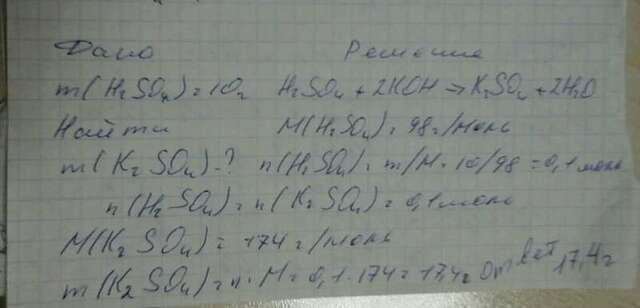 Дано Решение
m(H₂SO₄)=10г H₂SO₄ + 2KOH → K₂SO₄ + 2H₂O
Найти M(H₂SO₄)=98 г/моль
m(K₂SO₄)-? n(H₂SO₄)=m/M=10/98=0,1 моль
n(H₂SO₄)=n(K₂SO₄)=0,1 моль
M(K₂SO₄)=174 г/моль
m(K₂SO₄)=n·M=0,1·174=17,4г Ответ 17,4г